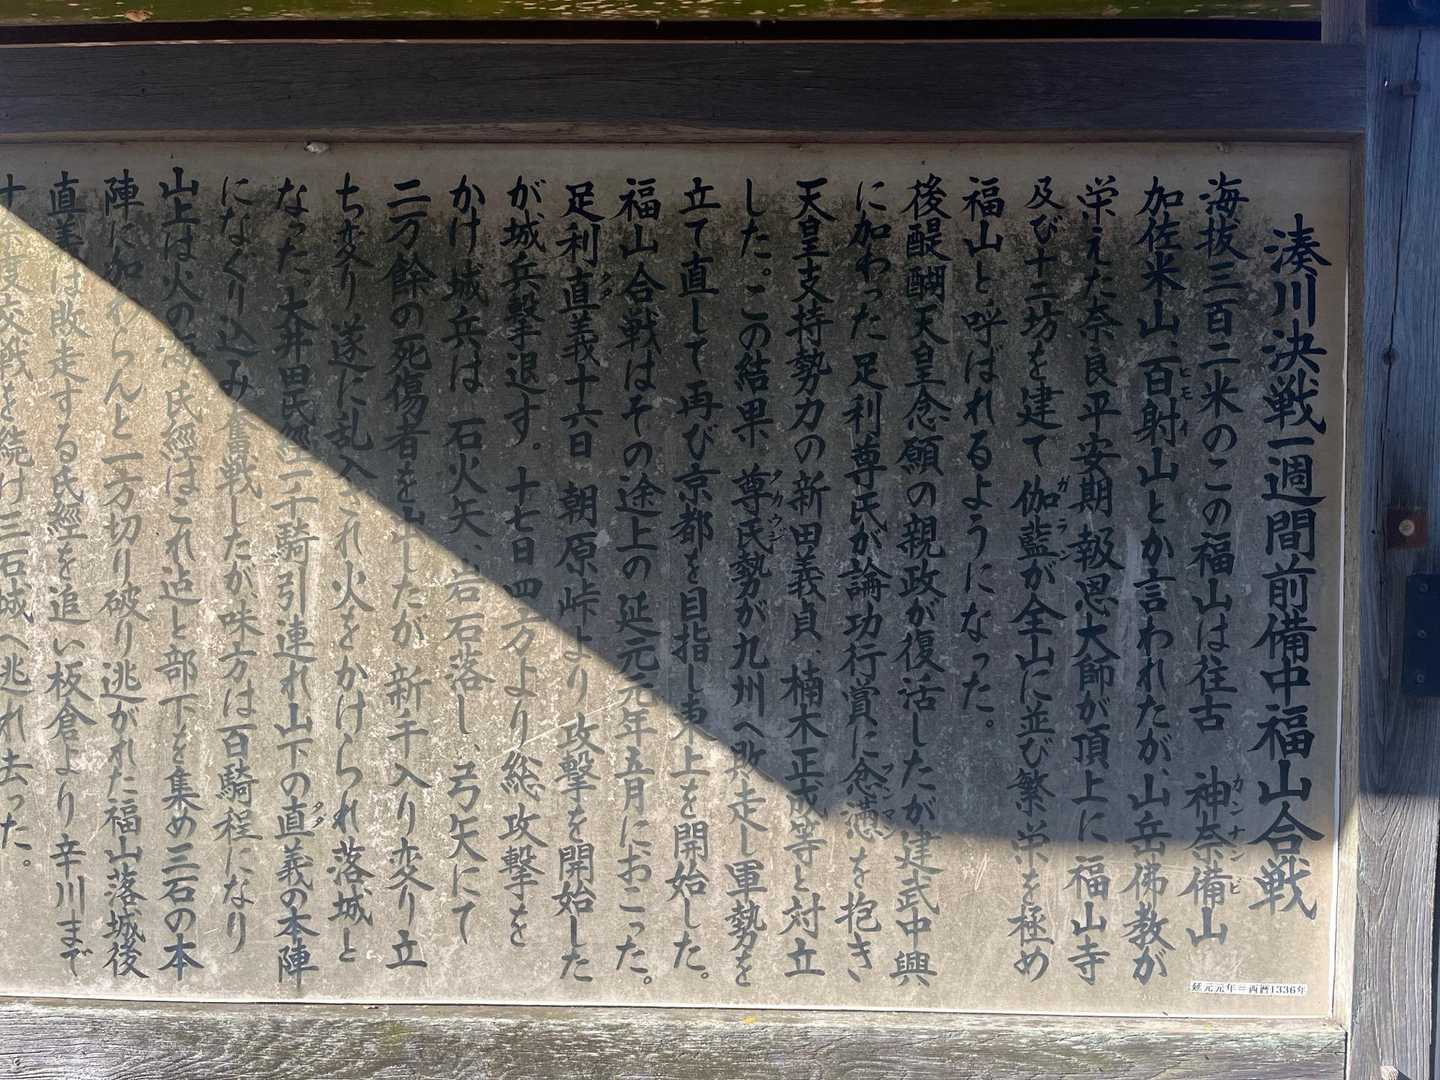 湊川決戦一週間前備中福山合戦
海抜三百二米のこの福山は往古 神奈備山
カンナンビ
加佐米山、百射山とか言われたが、山岳佛教が
ヒモイ
栄えた奈良平安期 報恩大師が頂上に福山寺
及び十二坊を建て 伽藍が全山に並び繁栄を極め
ガラン
福山と呼ばれるようになった。
後醍醐天皇念願の親政が復活したが建武中興
に加わった足利尊氏が論功行賞に念懣を抱き
フンマン
天皇支持勢力の新田義貞、楠木正成等と対立
した。この結果、尊氏勢が九州へ敗走し軍勢を
タカウジ
立て直して再び京都を目指し東上を開始した。
福山合戦はその途上の延元元年五月におこった。
足利直義十六日 朝原峠より攻撃を開始した
タダ
が城兵撃退す。十七日四方より総攻撃を
かけ城兵は 石火矢、岩石落し、弓矢にて
二万餘の死傷者を出したが 新手入り変り立
ち変り遂に乱入され火をかけられ落城と
なった。大井田氏經一千騎引連れ山下の直義の本陣
タダ
になぐり込み奮戦したが、味方は百騎程になり
山上は火の海氏經はこれ迠と部下を集め三石の本
陣に加わらんと一方切り破り逃がれた福山落城後
直義は敗走する氏經を追い板倉より辛川まで
度交戦を続け三石城へ逃れ去った。
延元元年=西暦1336年